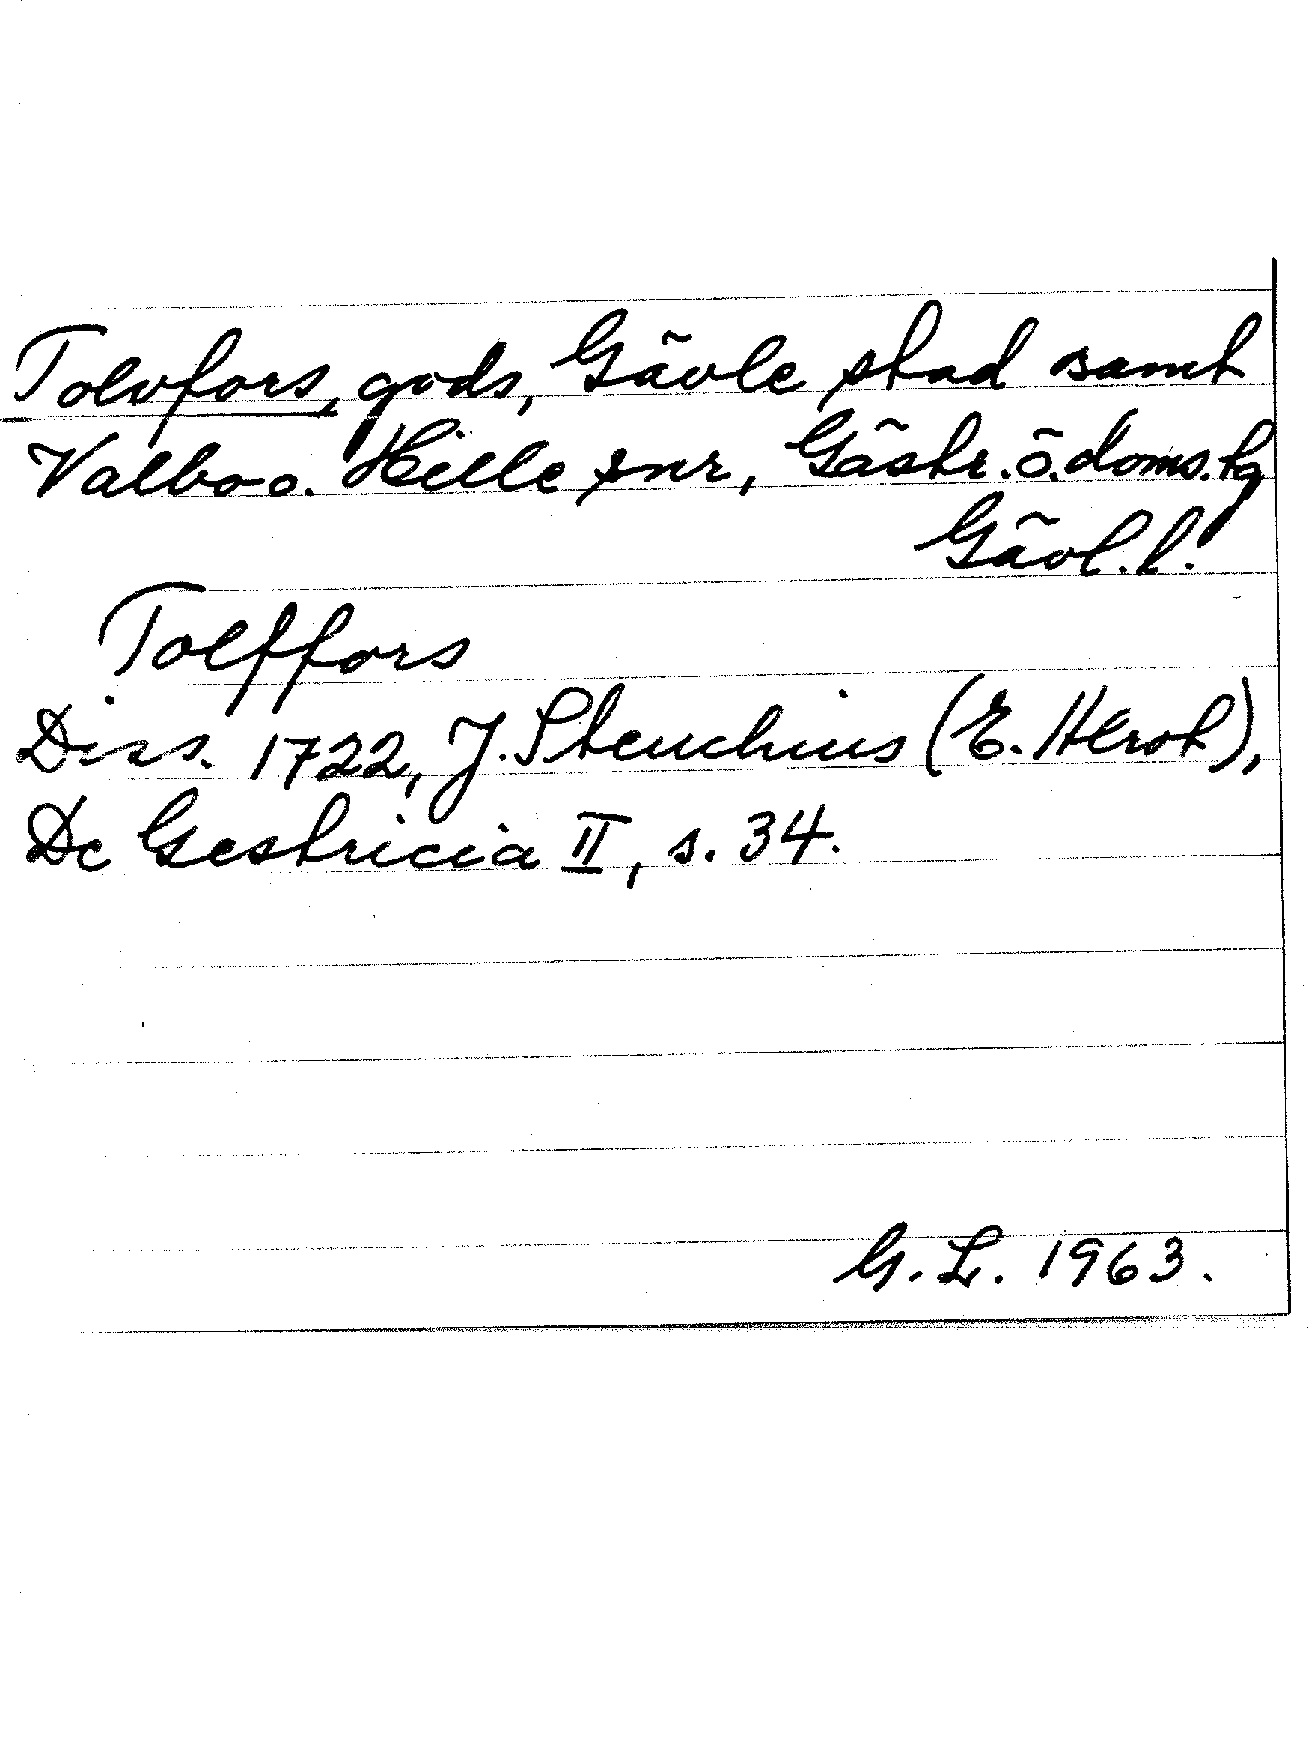 Tolvfors, gods, Gävle stad samt
Valbo o. Hille snr, Gästr. ö. doms. hg
Gävl. l.
Tolffors
Diss. 1722, J. Steuchius (E. Hlrot),
De Gestricia II, s. 34.
G. L. 1963.